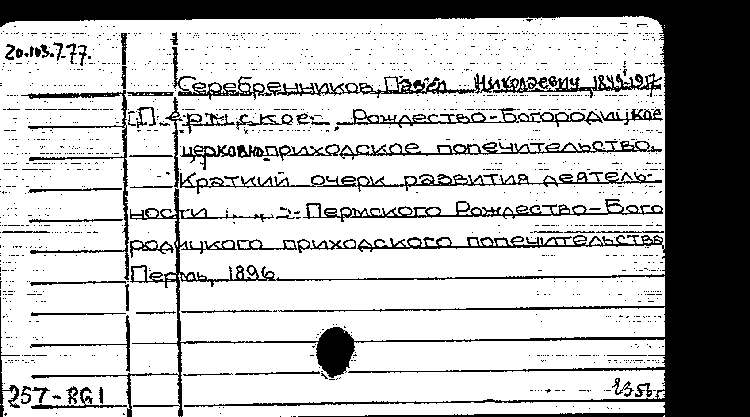 20.103.777.
Серебренников, Павел Николаевич, 1849-1917
[Пермское Рождество-Богородицкое
церковноприходское попечительство.
Краткий очерк развития деятель-
ности Пермского Рождество-Бого
родицкого приходского попечительства
Пермь, 1896.
257-RG1